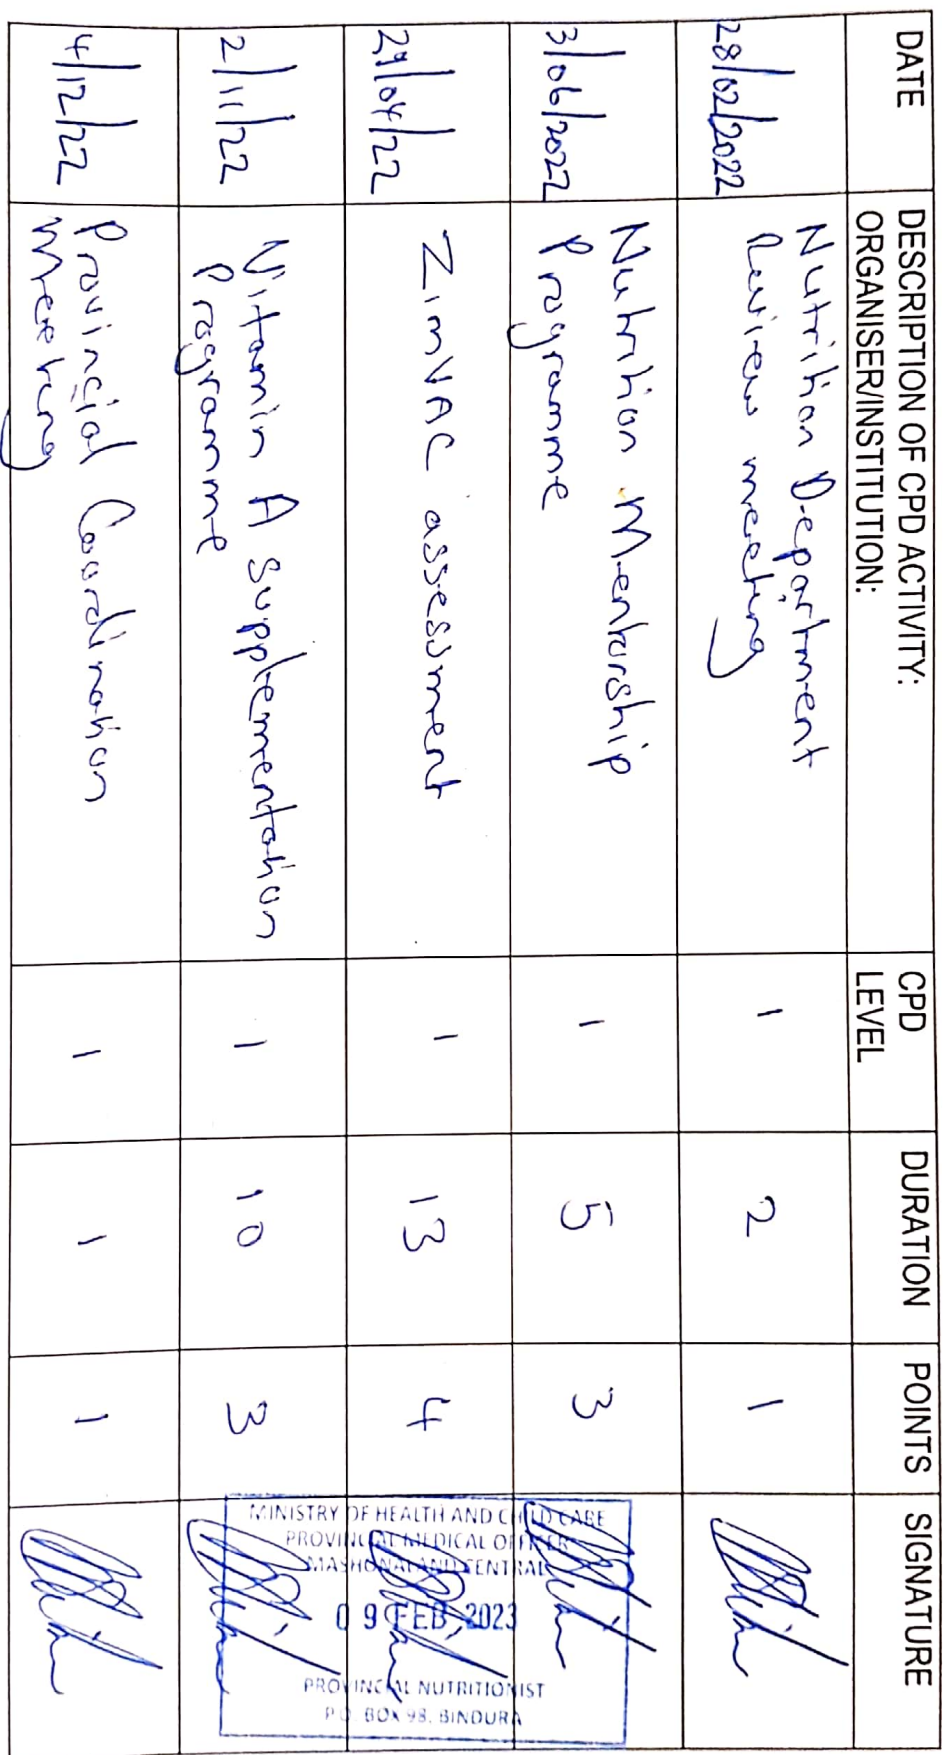 DATE
DESCRIPTION OF CPD ACTIVITY:
ORGANISER/INSTITUTION:
CPD
LEVEL
DURATION
POINTS
SIGNATURE
28/02/2022
Nutrition Department
Review meeting
1
2
1
3/06/2022
Nutrition Mentorship
Programme
1
5
3
29/04/22
ZimVAC assessment
1
13
4
2/11/22
Vitamin A supplementation
Programme
1
10
3
4/12/22
Provincial Coordination
Meeting
1
1
1
MINISTRY OF HEALTH AND CHILD CARE
PROVINCIAL MEDICAL OFFICER
MASHONALAND CENTRAL
09 FEB 2023
PROVINCIAL NUTRITIONIST
P.O. BOX 98, BINDURA